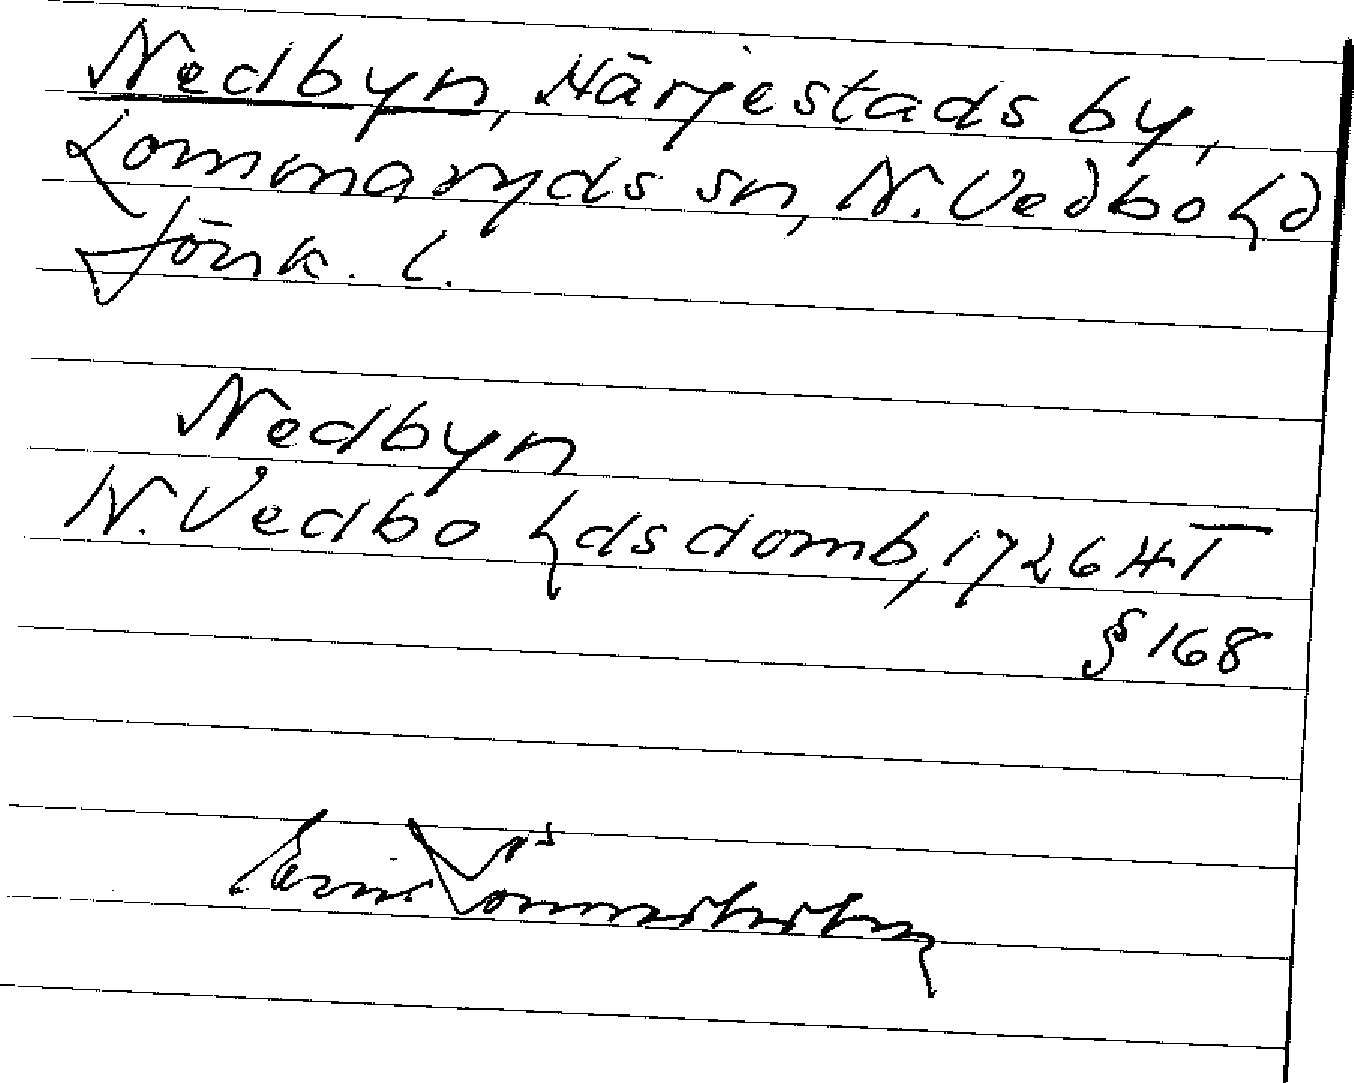 Nedbyn, Härjestads by,
Lommaryds sn, N. Vedbo hd
Jönk. l.
Nedbyn
N. Vedbo hds domb, 1726 HT
§ 168